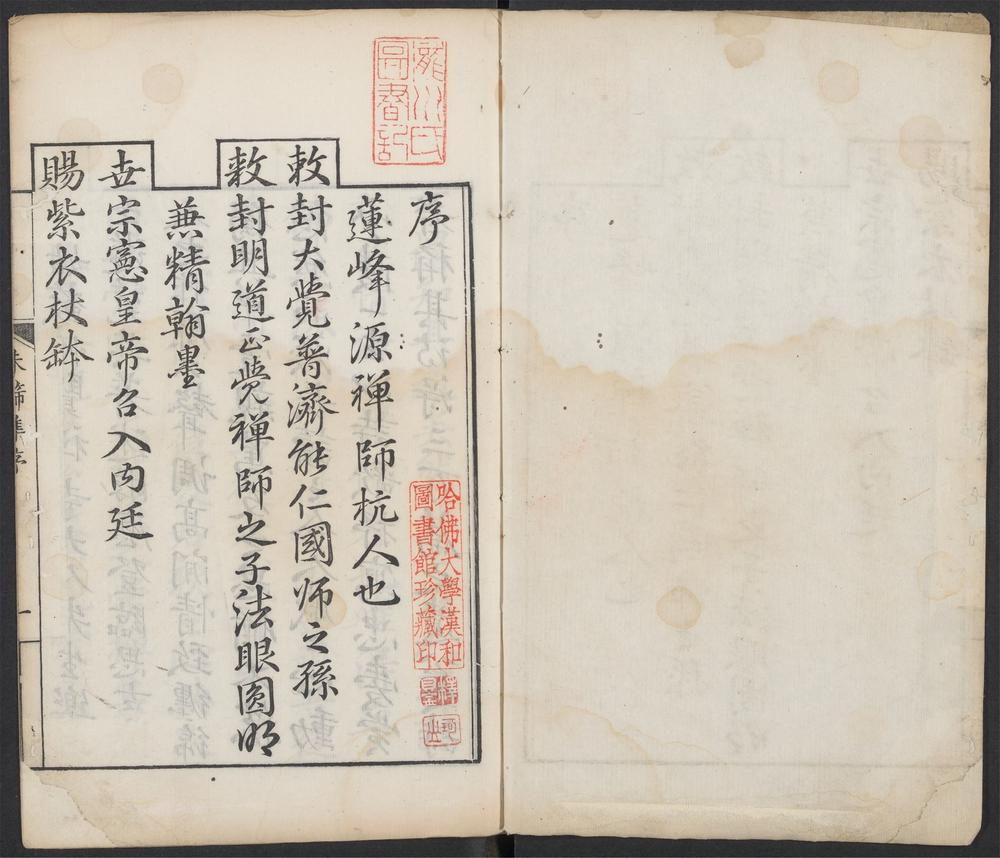 序
蓮峰源禅師杭人也
敕封大覺普濟能仁國师之孫
敕封明道正覺禅師之子法眼圆明
兼精翰墨
世宗憲皇帝召入内廷
賜紫衣杖鉢
序
一
龍川氏
圖書記
哈佛大學漢和
圖書館珍藏印